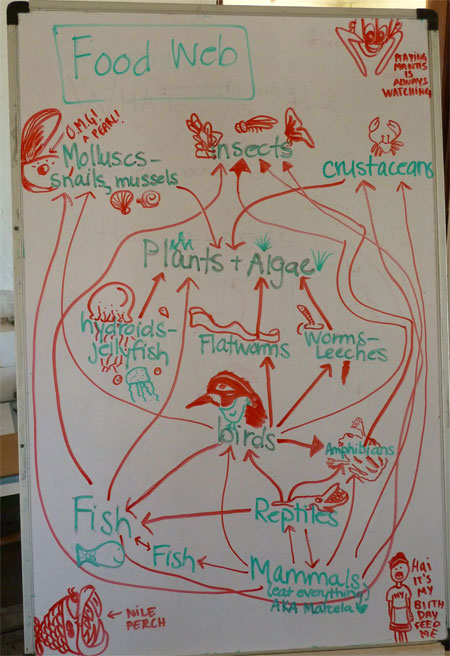 Food Web
PRAYING
MANTIS
IS
ALWAYS
WATCHING
O.M.G!
PEARL!
Molluscs-
snails, mussels
insects
crustaceans
Plants + Algae
hydroids-
jellyfish
Flatworms
Worms-
Leeches
birds
Amphibians
Fish
Reptiles
Fish
Mammals
(eat everything)
AKA Matcela
NILE
PERCH
HAI
IT'S
MY
BIRTH
DAY
FEED
ME
MY